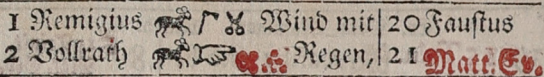 1 Remigius Wind mit 20 Faustus
2 Vollrath Regen, 21 Matt. Ev.